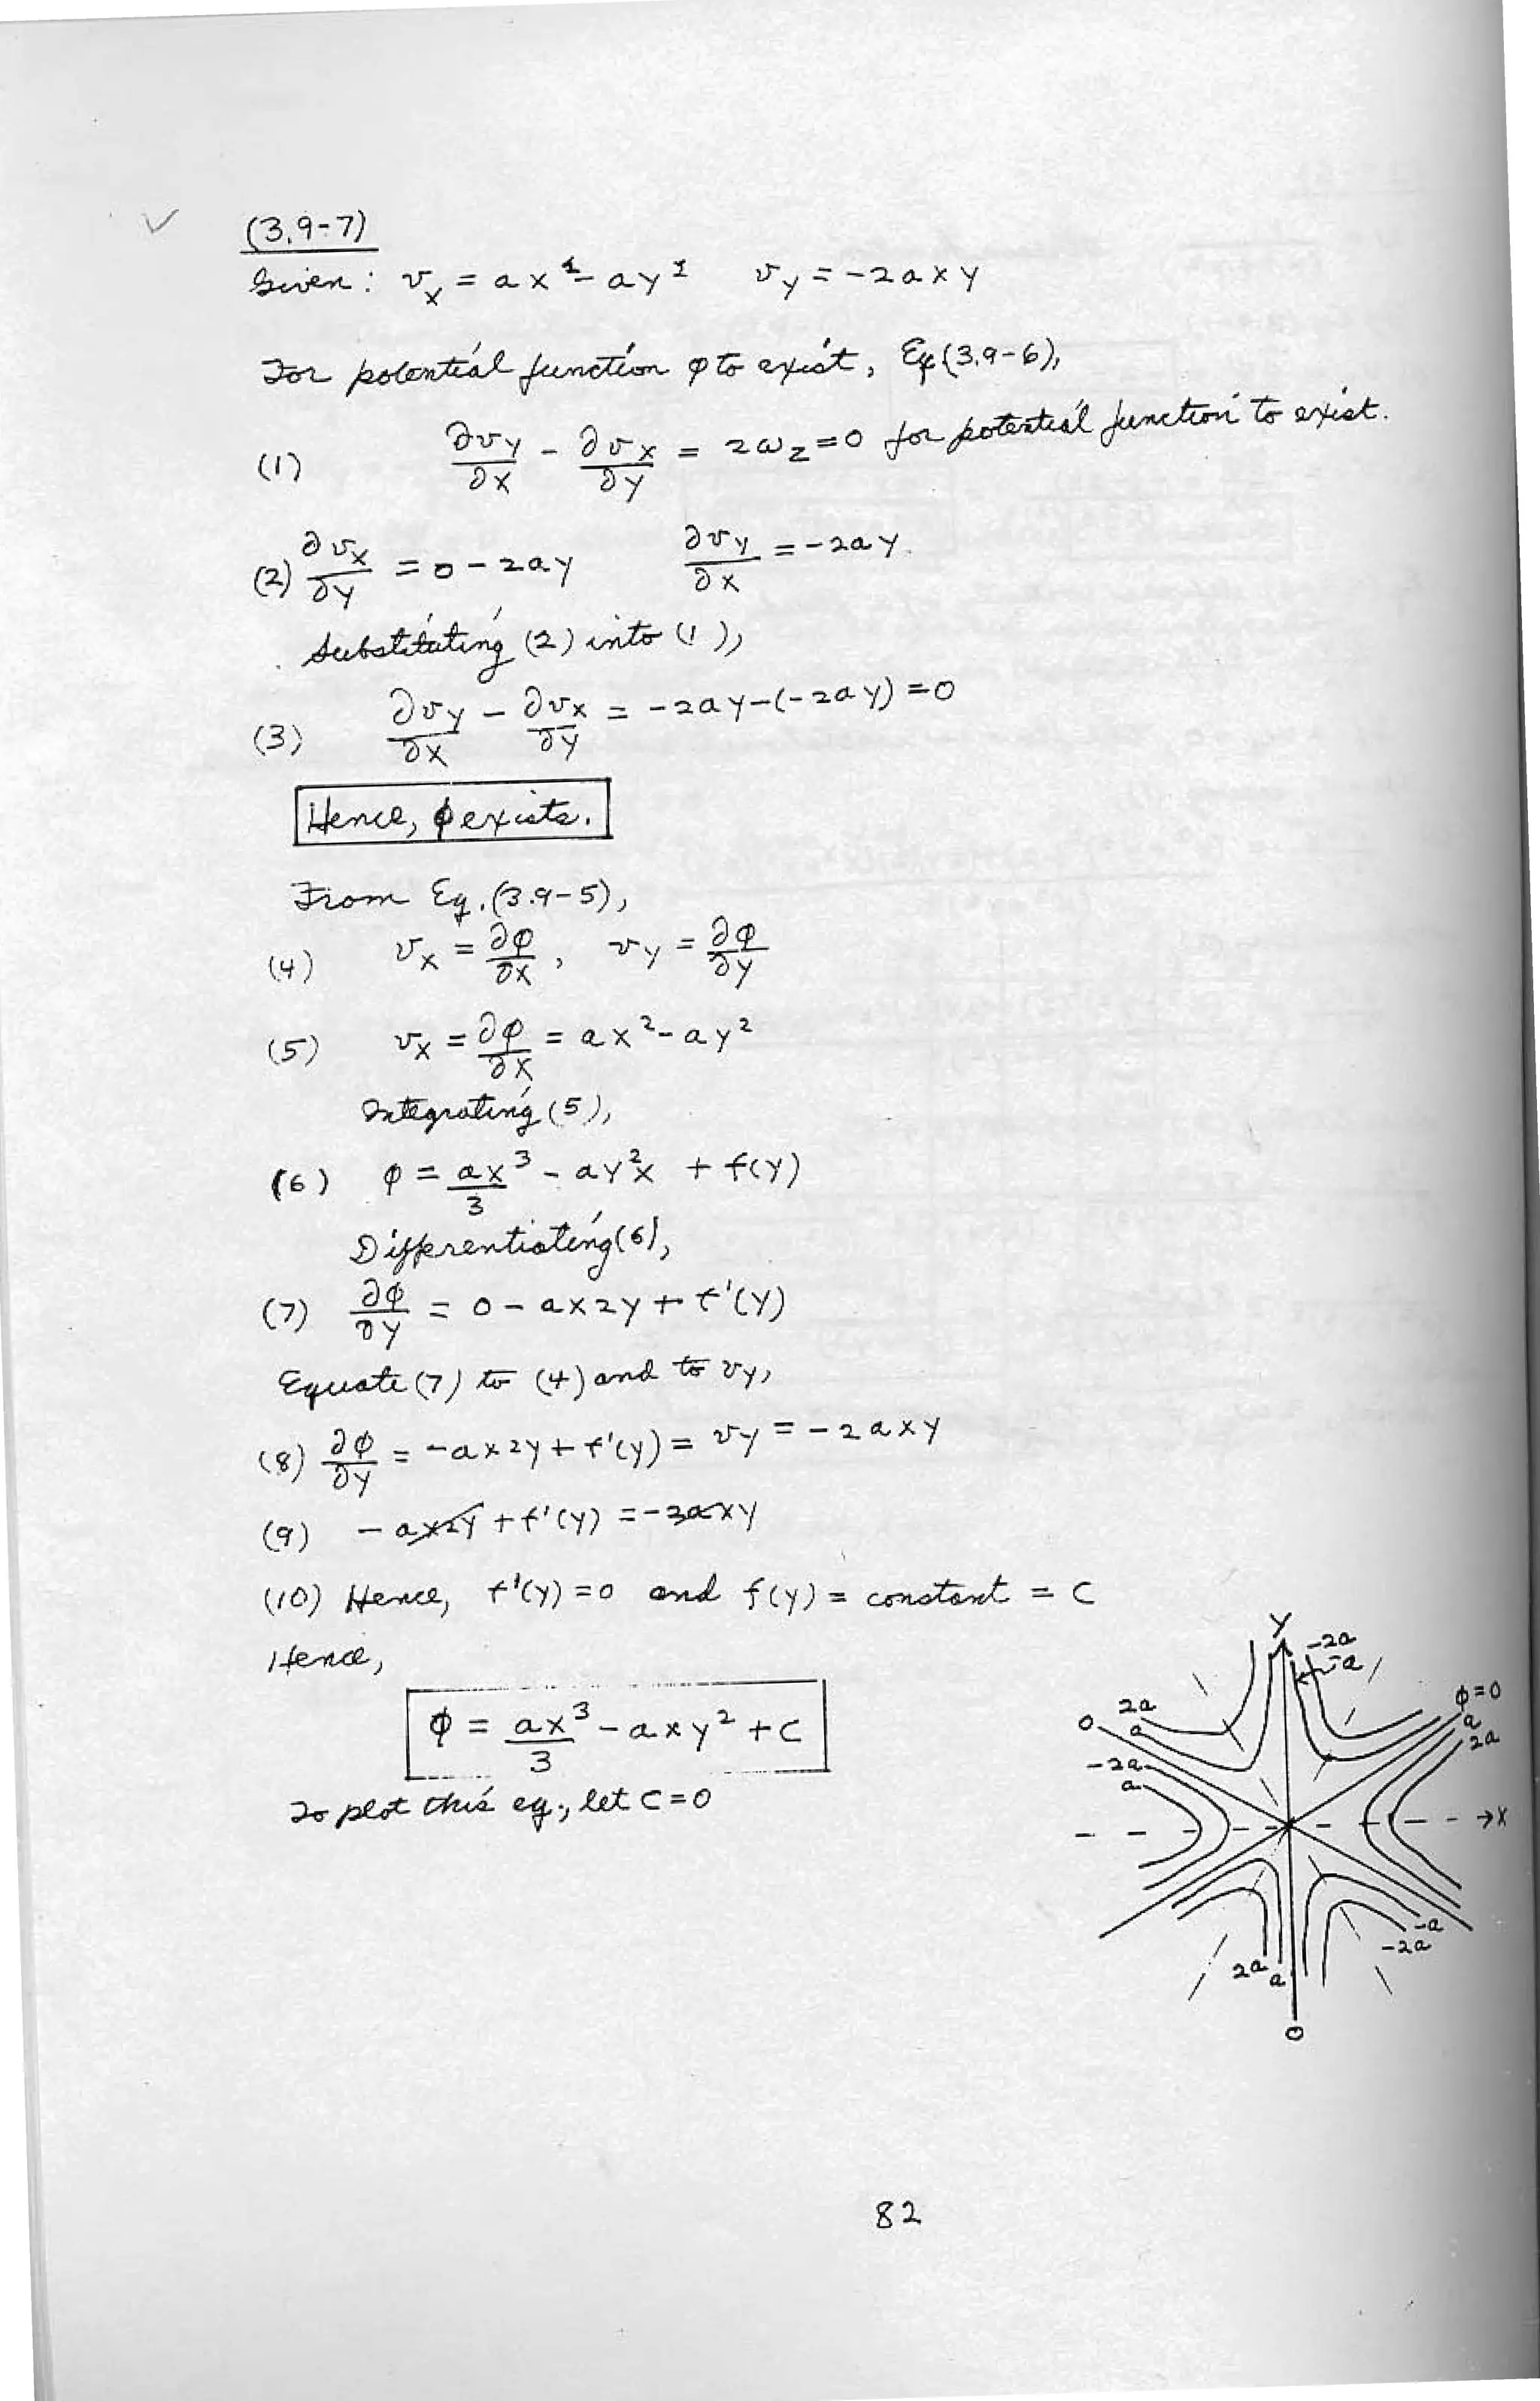 (3.9-7)
Given: v_x = ax² - ay² v_y = -2axy
For potential function φ to exist, Eq (3.9-6),
(1) ∂v_y/∂x - ∂v_x/∂y = 2ω_z = 0 for potential function to exist.
(2) ∂v_x/∂y = 0 - 2ay ∂v_y/∂x = -2ay.
Substituting (2) into (1),
(3) ∂v_y/∂x - ∂v_x/∂y = -2ay-(-2ay) = 0
Hence, φ exists.
From Eq. (3.9-5),
(4) v_x = ∂φ/∂x, v_y = ∂φ/∂y
(5) v_x = ∂φ/∂x = ax² - ay²
Integrating (5),
(6) φ = ax³/3 - ay²x + f(y)
Differentiating (6),
(7) ∂φ/∂y = 0 - ax2y + f'(y)
Equate (7) to (4) and to v_y,
(8) ∂φ/∂y = -ax2y + f'(y) = v_y = -2axy
(9) - ax2y + f'(y) = -2axy
(10) Hence, f'(y) = 0 and f(y) = constant = C
Hence,
φ = ax³/3 - axy² + C
To plot this eq., let C = 0
Y
-2a
-a
φ=0
a
2a
2a
a
0
-2a
a
→X
-a
-2a
2a
a
0
82